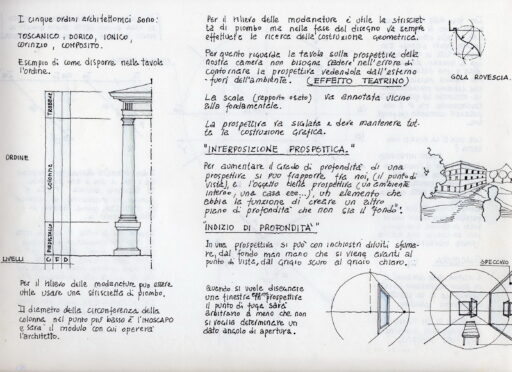 I cinque ordini architettonici sono:
TOSCANICO, DORICO, IONICO,
CORINZIO, COMPOSITO.
Esempio di come disporre nella tavola
l'ordine.
TRABEAZ.
COLONNA
PIEDISTALLO
ORDINE
LIVELLI
C F D
Per il rilievo delle modanature può essere
utile usare una striscietta di piombo.
Il diametro della circonferenza della
colonna nel punto più basso è l'IMOSCAPO
e sarà il modulo con cui opererà
l'architetto.
Per il rilievo delle modanature è utile la strisciet-
ta di piombo ma nella fase del disegno va sempre
effettuata la ricerca della costruzione geometrica.
Per quanto riguarda la tavola sulla prospettiva della
nostra camera non bisogna cadere nell'errore di
contornare la prospettiva vedendola dall'esterno
fuori dell'ambiente. (EFFETTO TEATRINO)
La scala (rapporto es:) va annotata vicino
alla fondamentale.
La prospettiva va scalata e deve mantenere tut-
ta la costruzione grafica.
"INTERPOSIZIONE PROSPETTICA."
Per aumentare il grado di profondità di una
prospettiva si può frapporre fra noi, (il punto di
vista), e l'oggetto della prospettiva (un ambiente
interno, una casa ecc...), un altro elemento che
abbia la funzione di creare un altro
piano di profondità che non sia il "fondo".
"INDIZIO DI PROFONDITÀ"
In una prospettiva si può con inchiostri diluiti sfuma-
re, dal fondo man mano che si viene avanti al
punto di vista, dal grigio scuro al grigio chiaro.
Quando si vuole disegnare
una finestra in prospettiva
il punto di fuga sarà
arbitrario a meno che non
si voglia determinare un
dato angolo di apertura.
GOLA ROVESCIA.
SPECCHIO